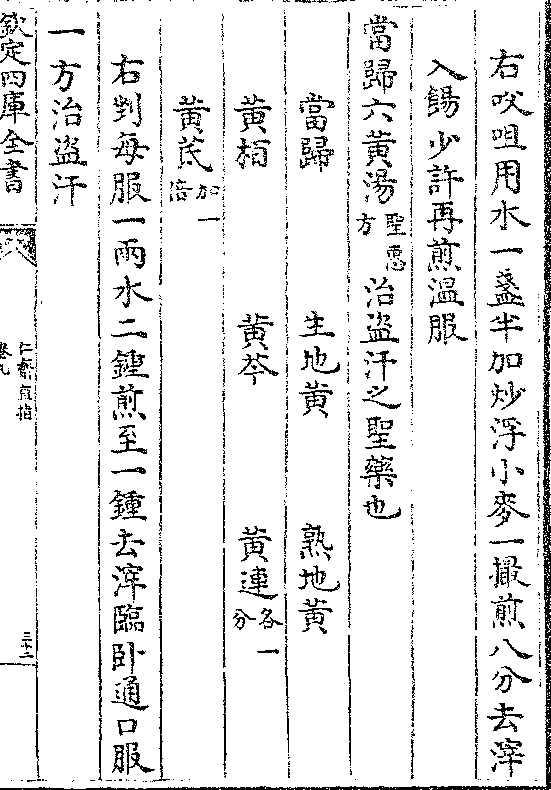 右㕮咀用水一盞半加炒浮小麥一撮煎八分去滓
入餳少許再煎溫服
當歸六黃湯聖惠方治盜汗之聖藥也
當歸 生地黃 熟地黃
黃栢 黃芩 黃連各一分
黃芪加一倍
右剉每服一兩水二鍾煎至一鍾去滓臨卧通口服
一方治盜汗
欽定四庫全書
仁齋直指
卷九
三十二